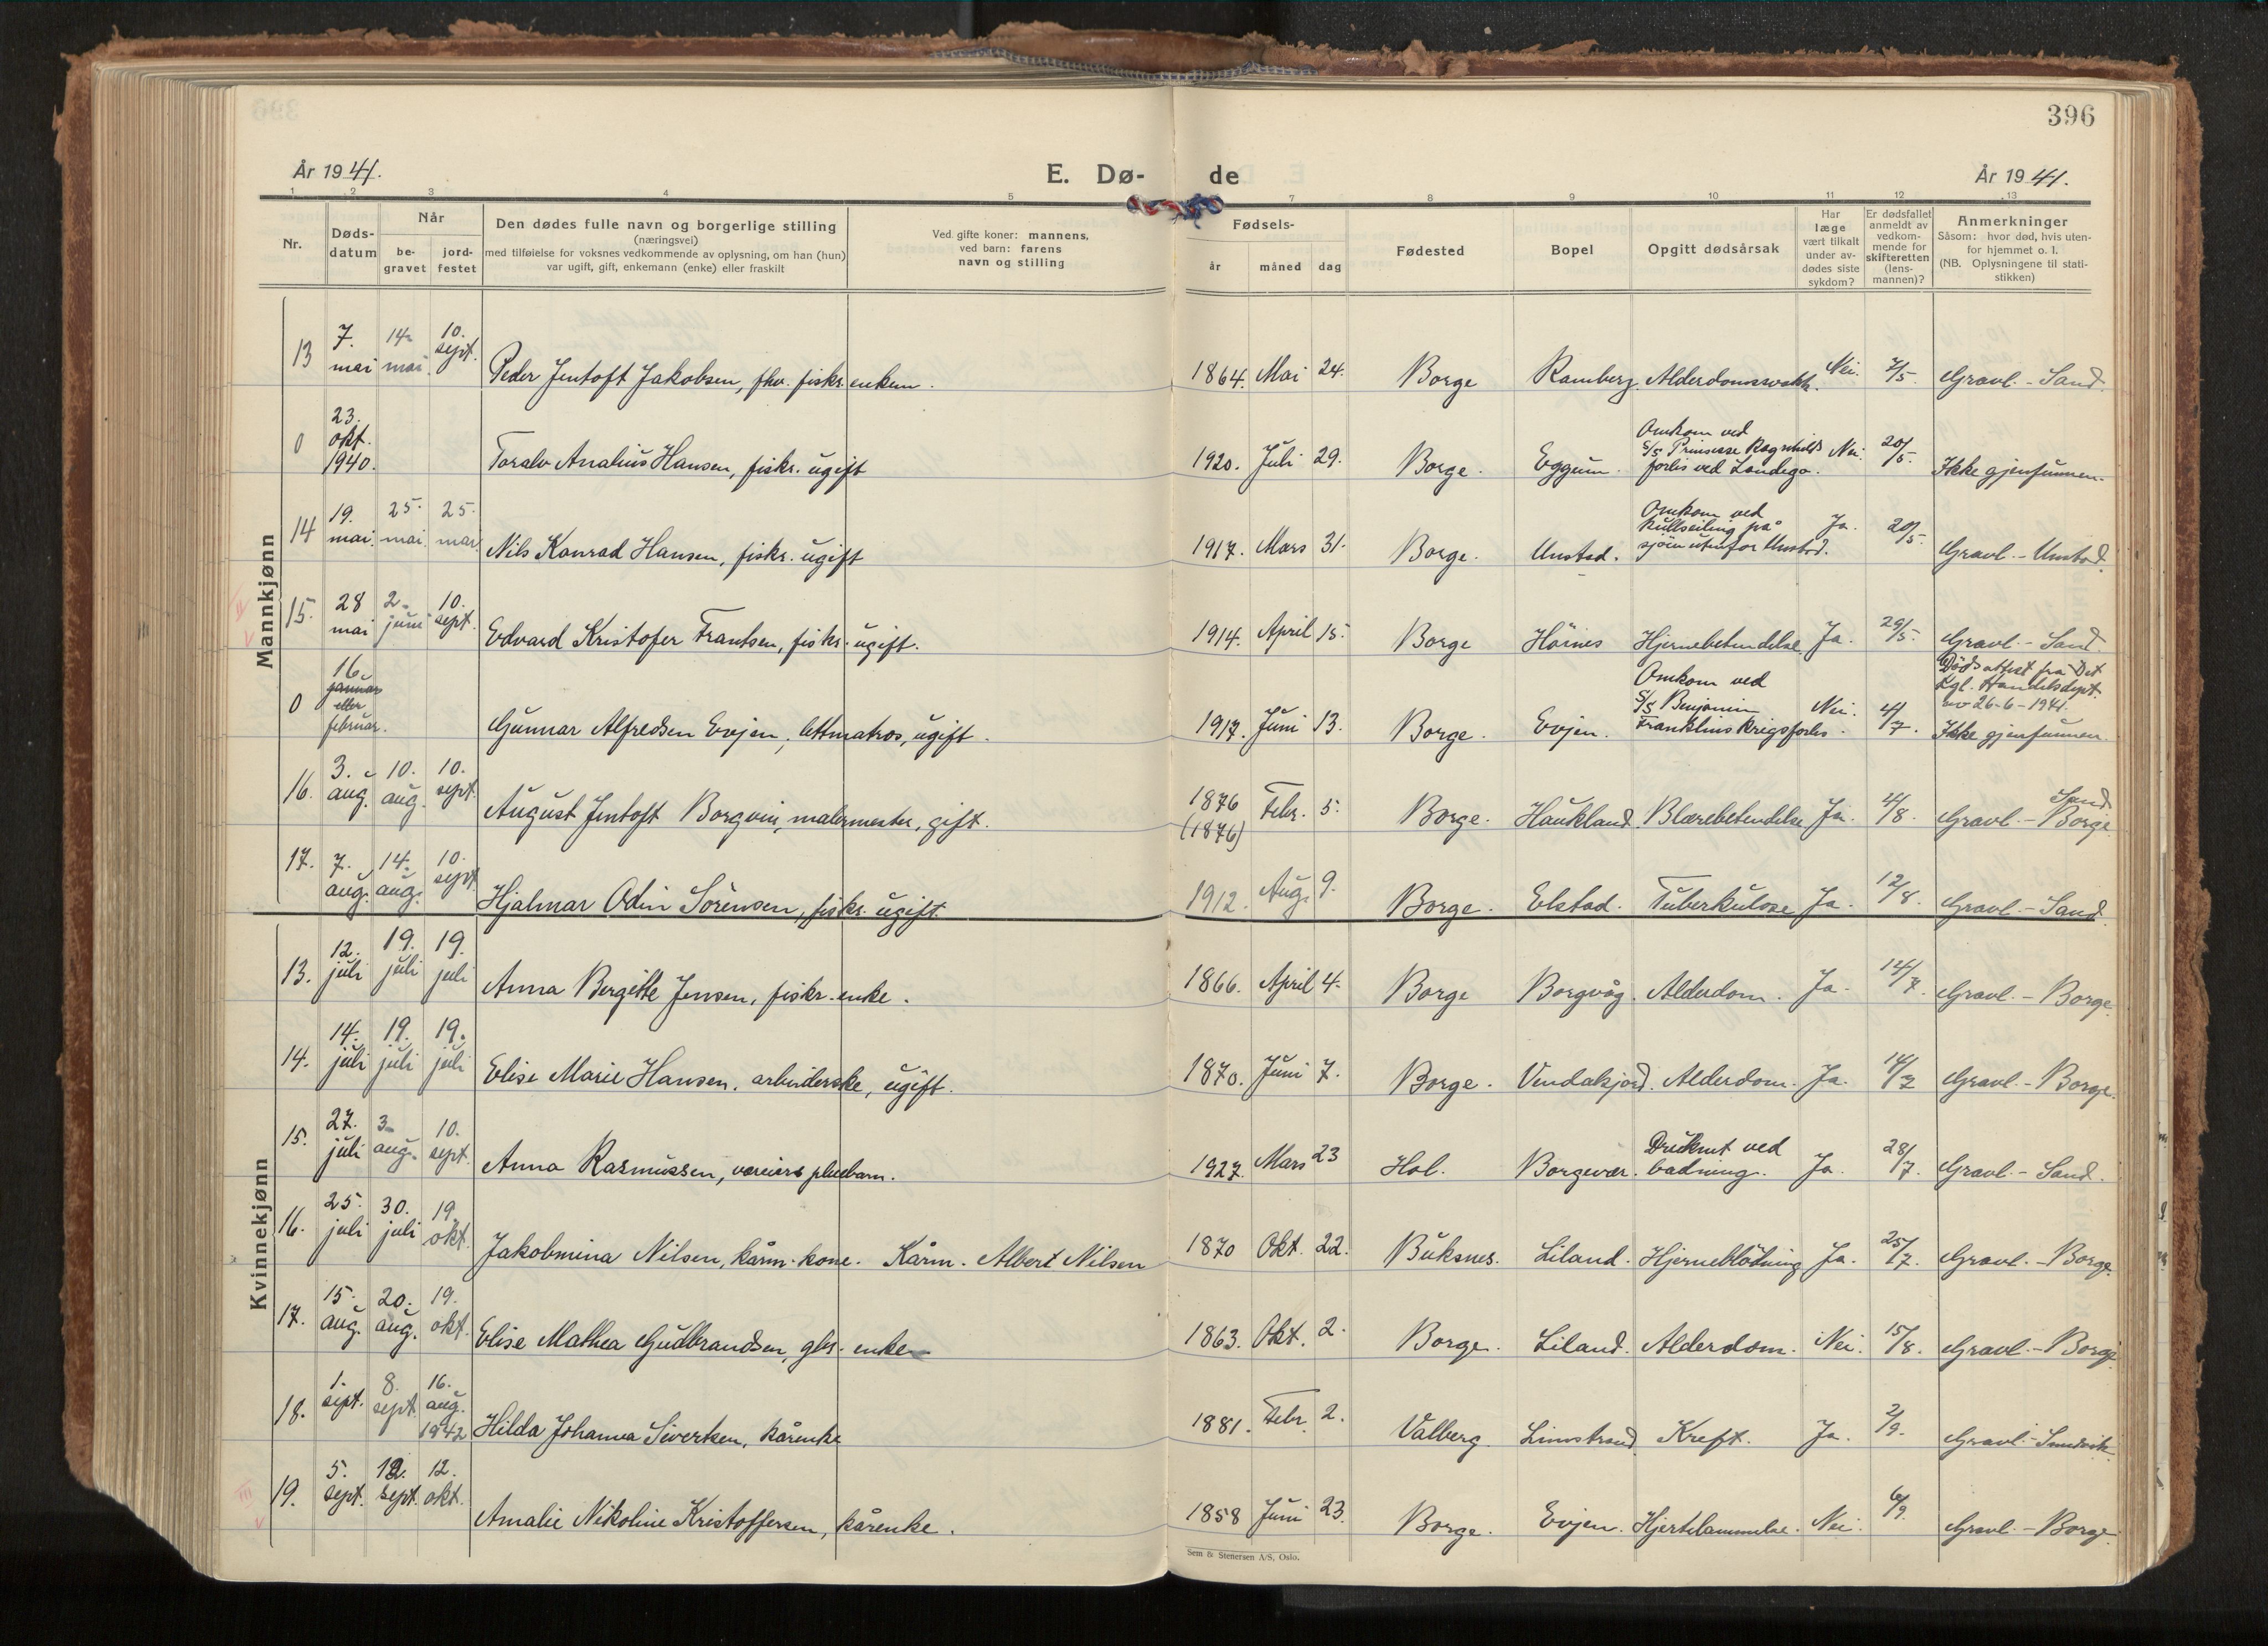 396
År 1941.
E. Dø- de
År 1941.
1 2 3 4 5 7 8 9 10 11 12 13
Nr.
Døds-
datum
Når
be-
gravet
jord-
festet
Den dødes fulle navn og borgerlige stilling
(næringsvei)
med tilføielse for voksnes vedkommende av oplysning, om han (hun)
var ugift, gift, enkemann (enke) eller fraskilt
Ved gifte koner: mannens,
ved barn: farens
navn og stilling
Fødsels-
år måned dag
Fødested
Bopel
Opgitt dødsårsak
Har
læge
vært tilkalt
under av-
dødes siste
sykdom?
Er dødsfallet
anmeldt av
vedkom-
mende for
skifteretten
(lens-
mannen)?
Anmerkninger
Såsom: hvor død, hvis uten-
for hjemmet o. l.
(NB. Oplysningene til stati-
stikken)
Mannkjønn
13 7. mai 14. mai 10. sept. Peder Jentoft Jakobsen, fhv. fisker. enkem. 1864. Mai 24. Borge Ramberg. Alderdomssvakh. Nei. 7/5. Gravl. - Sand.
0 23. okt. 1940. Toralv Analius Hansen, fiskr. ugift 1920. Juli 29. Borge. Eggum. Omkom ved
S/S Prinsesse Ragnhilds
forlis ved Landego. Nei. 20/5. Ikke gjenfunnen.
14 19. mai. 25. mai. 25. mai Nils Konrad Hansen, fiskr. ugift 1917. Mars 31. Borge. Unstad. Omkom ved
kullseiling på
sjøen utenfor Unstad. Ja. 20/5. Gravl. - Unstad.
15. 28 mai 2. juni 10. sept. Edvard Kristofer Frantsen, fiskr. ugift. 1914. April 15. Borge Hörnes Hjernebetendelse Ja. 29/5. Gravl. - Sand.
0 16. januar eller februar. Gunnar Alfredsen Evjen, lettmatros, ugift. 1917. Juni 13. Borge. Evjen. Omkom ved
S/S Benjamin
Franklins krigsforlis. Nei. 4/7. Dödsattest fra Det
Kgl. Handelsdept.
av 26-6-1941.
Ikke gjenfunnen.
16. 3. aug. 10. aug. 10. sept. August Jentoft Borgvin, malermester, gift. 1876 (1876) Febr. 5. Borge. Haukland. Blærebetendelse Ja. 4/8. Gravl. - Sand Borge
17. 7. aug. 14. aug. 10. sept. Hjalmar Odin Sörensen, fiskr. ugift. 1912. Aug. 9. Borge. Elstad. Tuberkulose Ja. 12/8. Gravl. - Sand.
Kvinnekjønn
13. 12. juli 19. juli 19. juli Anna Bergitte Jensen, fiskr. enke. 1866. April 4. Borge Borgvåg. Alderdom. Ja. 14/7. Gravl. - Borge.
14. 14. juli 19. juli 19. juli Elise Marie Hansen. arbeiderske, ugift. 1870. Juni 7. Borge. Vendalsjord. Alderdom. Ja. 14/7 Gravl. - Borge.
15. 27. juli 3. aug. 10. sept. Anna Rasmussen, væreiers pleiebarn. 1927. Mars 23 Hol. Borgevær. Druknet ved
badning. Ja. 28/7. Gravl. - Sand.
16. 25. juli 30. juli 19. okt. Jakobmina Nilsen, kårm. kone. Kårm. Albert Nilsen 1870 Okt. 22. Buksnes. Liland. Hjerneblödning Ja. 25/7. Gravl. - Borge.
17. 15. aug. 20. aug. 19. okt. Elise Mathea Gudbrandsen, gbr. enke 1863. Okt. 2. Borge. Liland. Alderdom. Nei. 15/8. Gravl. - Borge
18. 1. sept. 8. sept. 16. aug. 1942 Hilda Johanna Sivertsen, kårenke 1881. Febr. 2. Valberg. Limstrand Kreft. Ja. 2/9. Gravl. -
19. 5. sept. 12. sept. 12. okt. Amalie Nikoline Kristoffersen, kårenke. 1858 Juni 23. Borge. Evjen. Hjertelammelse. Nei. 6/9. Gravl. - Borge.
Sem & Stenersen A/S, Oslo.